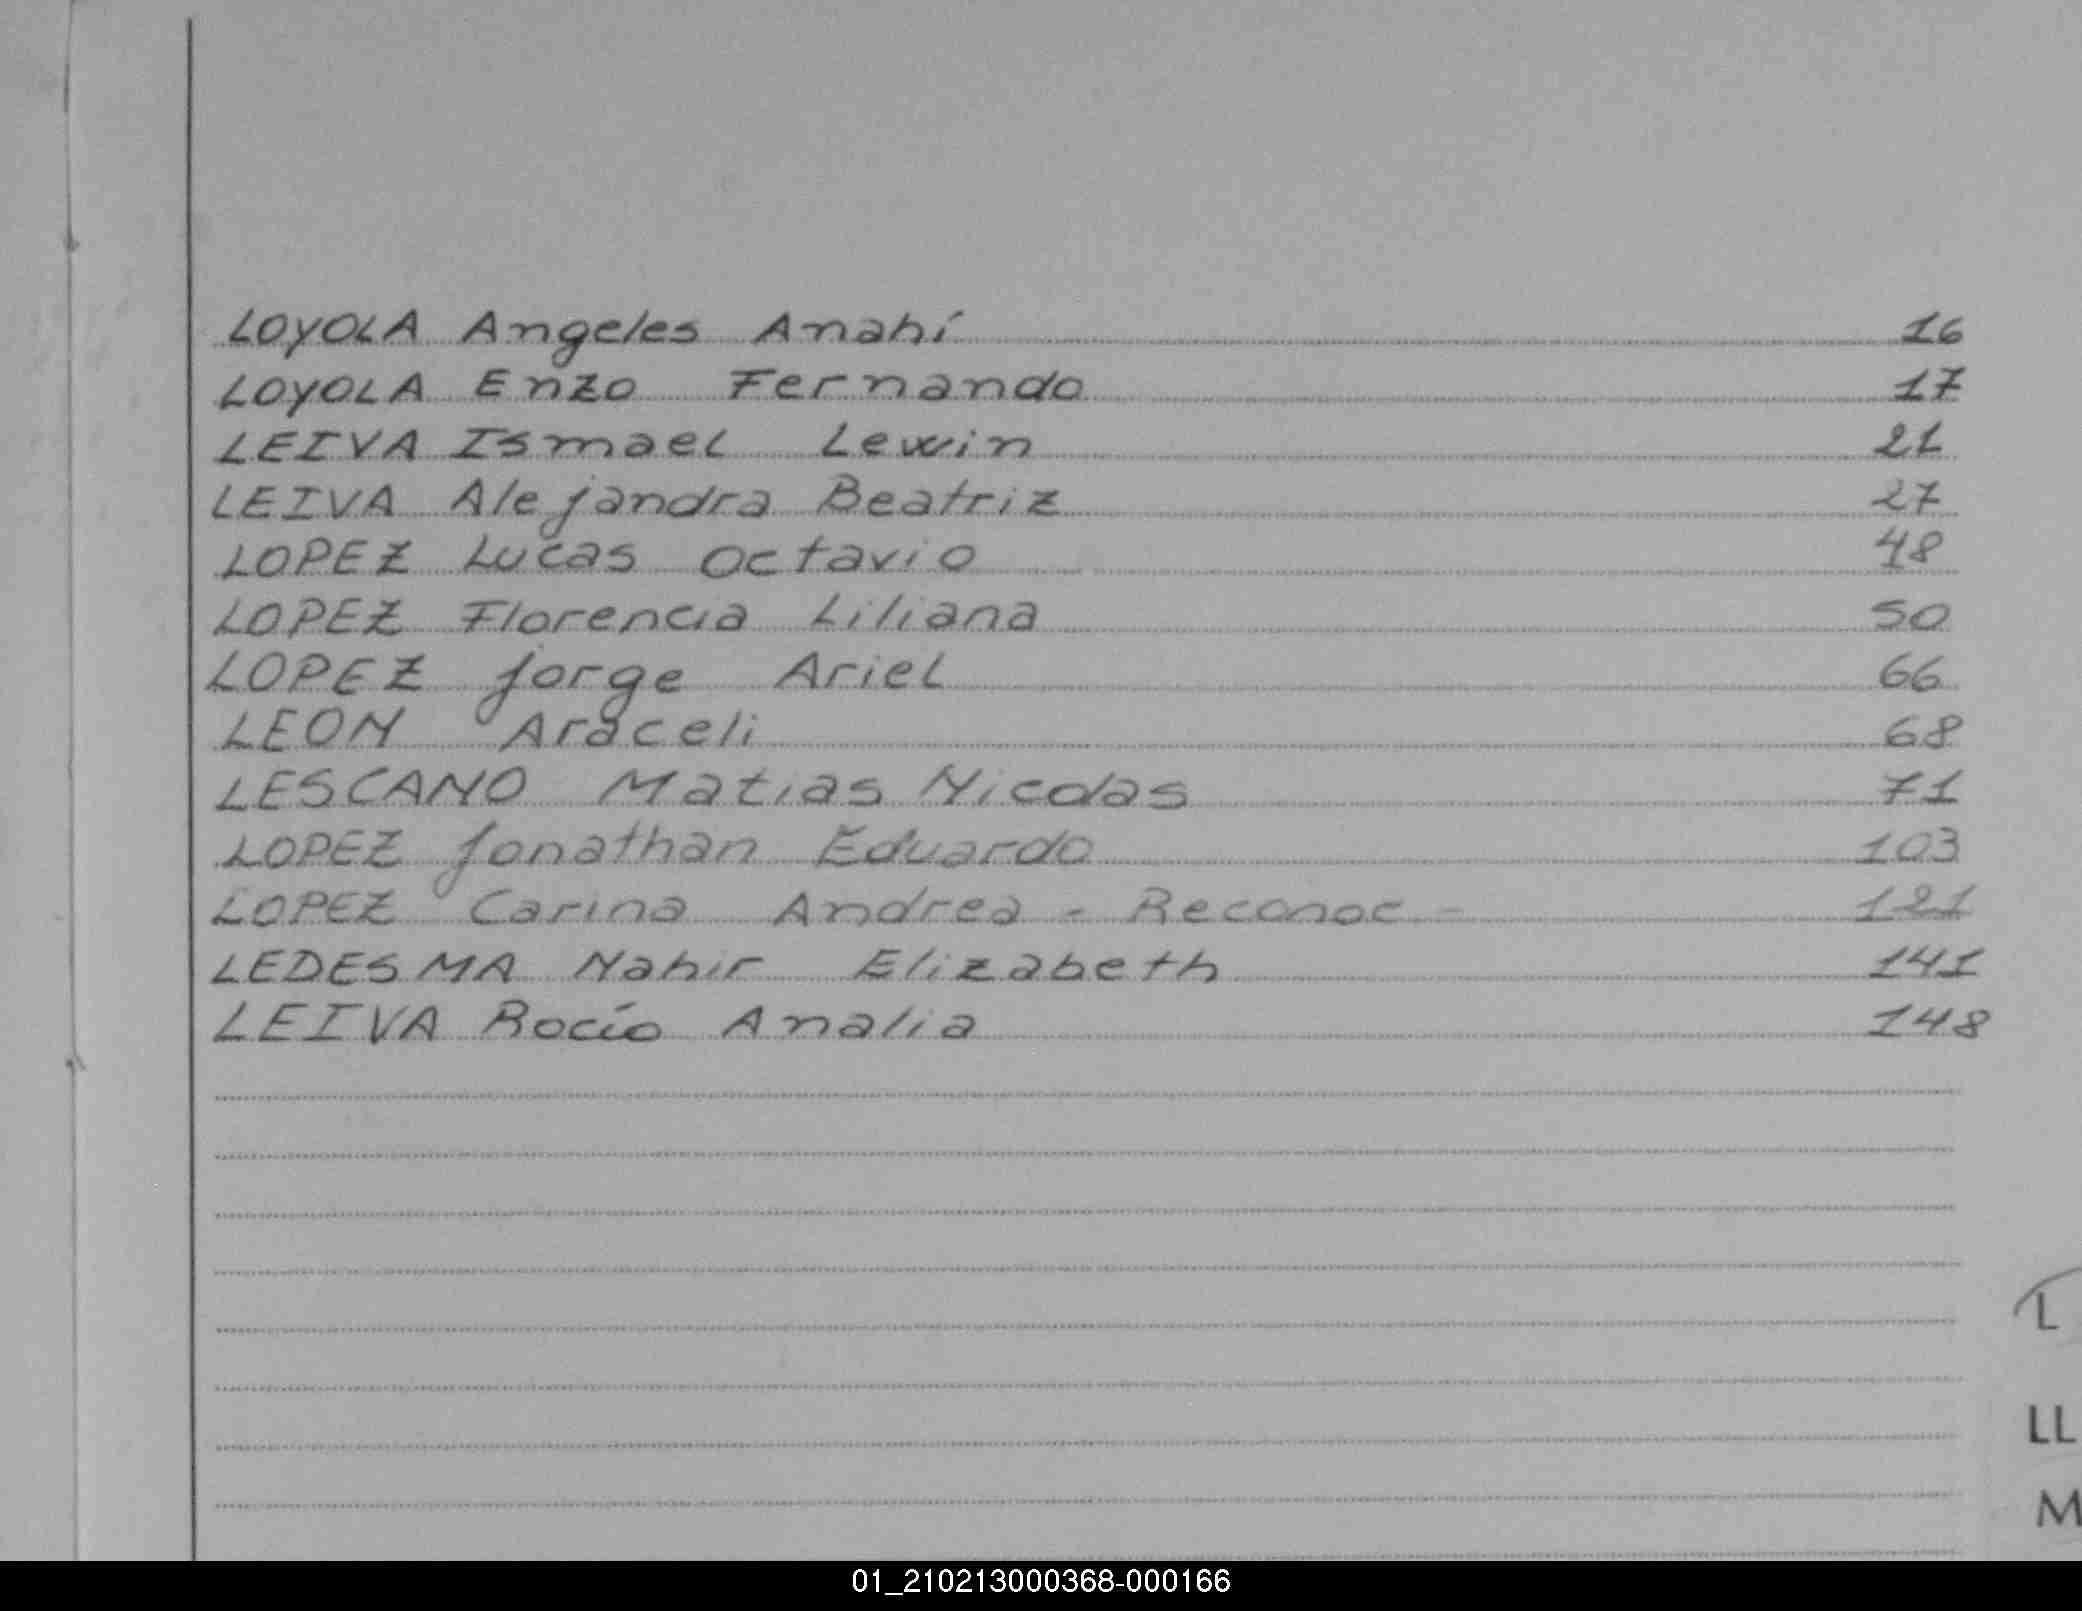 LOYOLA Angeles Anahí 16
LOYOLA Enzo Fernando 17
LEIVA Ismael Lewin 21
LEIVA Alejandra Beatriz 27
LOPEZ Lucas Octavio 48
LOPEZ Florencia Liliana 50
LOPEZ Jorge Ariel 66
LEON Araceli 68
LESCANO Matias Nicolas 71
LOPEZ Jonathan Eduardo 103
LOPEZ Carina Andrea - Reconoc - 121
LEDESMA Nahir Elizabeth 141
LEIVA Rocío Analia 148
L
LL
M
01_210213000368-000166